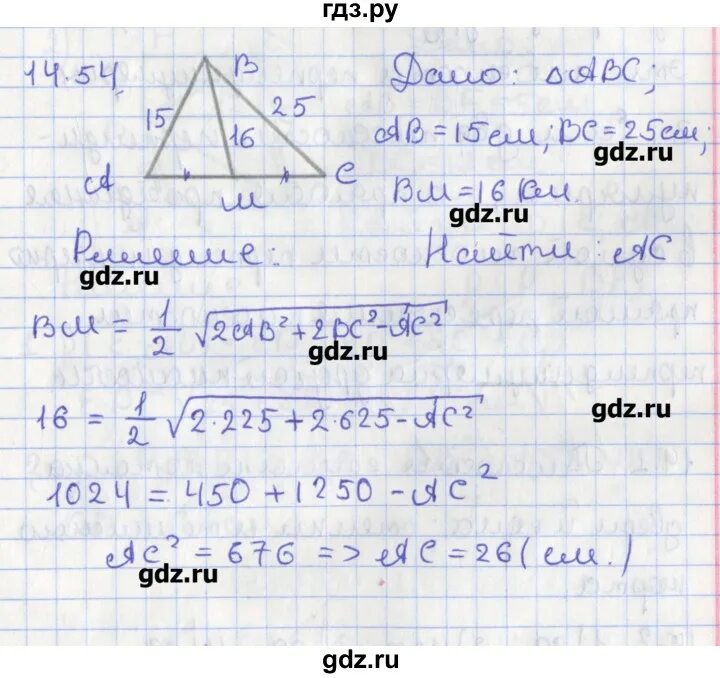 гдз.ру
14.54 B Дано: △ABC;
15 16 25 AB = 15 см; BC = 25 см;
gdz.ru
A M C BM = 16 см.
gdz.ru
Решение: Найти: AC
gdz.ru
BM = 1/2 √(2AB² + 2BC² - AC²)
gdz.ru
16 = 1/2 √(2·225 + 2·625 - AC²)
gdz.ru
1024 = 450 + 1250 - AC²
AC² = 676 => AC = 26 (см.)
gdz.ru
gdz.ru